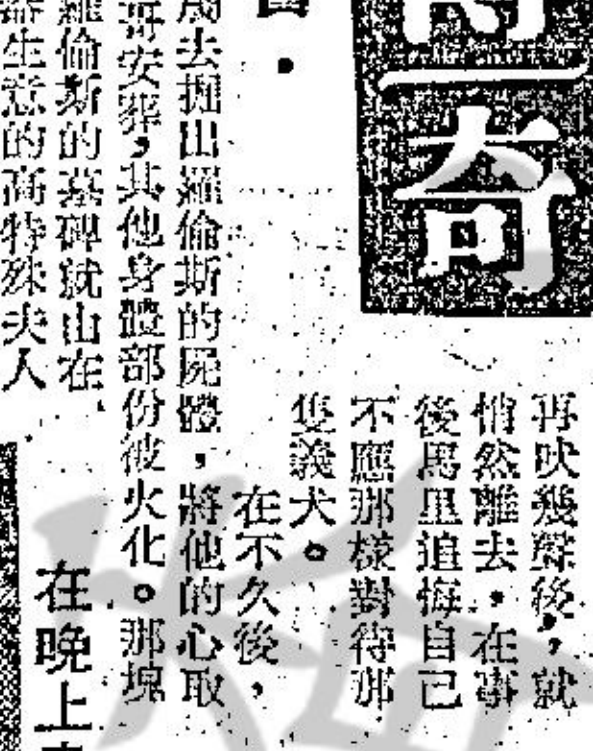 奇
再吠幾聲後,就
悄然離去,在事
後馬里追悔自己
不應那樣對待那
隻義大。
在不久後,
去掘出羅倫斯的屍體,將他的心取
安葬,其他身體部份被火化。那塊
羅倫斯的墓碑就由在
生意的高特殊夫人
在晚上